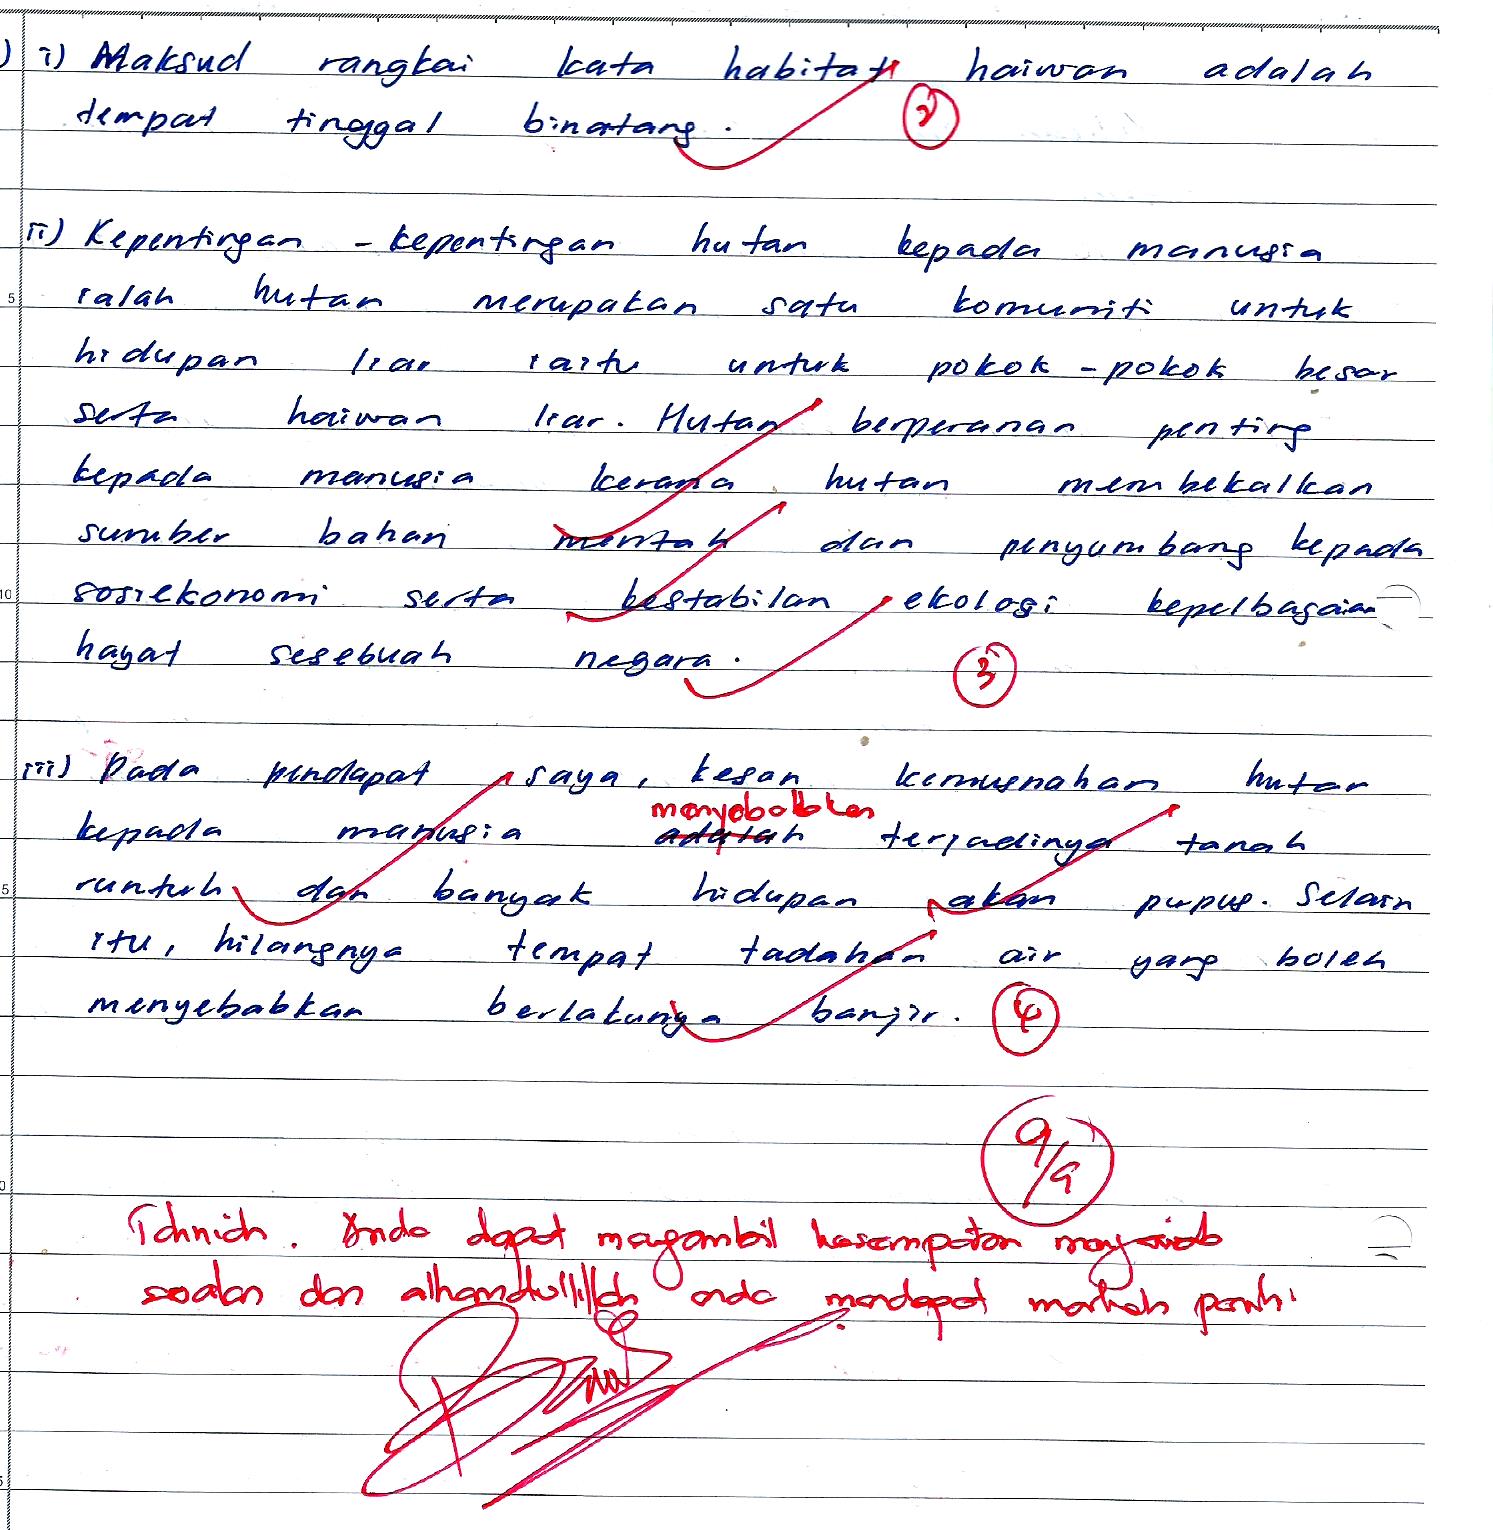 ) i) Maksud rangkai kata habitat haiwan adalah
tempat tinggal binatang.
2
ii) Kepentingan - kepentingan hutan kepada manusia
5 ialah hutan merupakan satu komuniti untuk
hidupan liar iaitu untuk pokok - pokok besar
serta haiwan liar. Hutan berperanan penting
kepada manusia kerana hutan membekalkan
sumber bahan mentah dan penyumbang kepada
10 sosiekonomi serta kestabilan ekologi kepelbagaian
hayat sesebuah negara.
3
iii) Pada pendapat saya, kesan kemusnahan hutan
menyebabkan
kepada manusia adalah terjadinya tanah
5 runtuh dan banyak hidupan akan pupus. Selain
itu, hilangnya tempat tadahan air yang boleh
menyebabkan berlakunya banjir.
4
9/9
0
Tahniah. Anda dapat mengambil kesempatan menjawab
soalan dan alhamdulillah anda mendapat markah penuh.
5